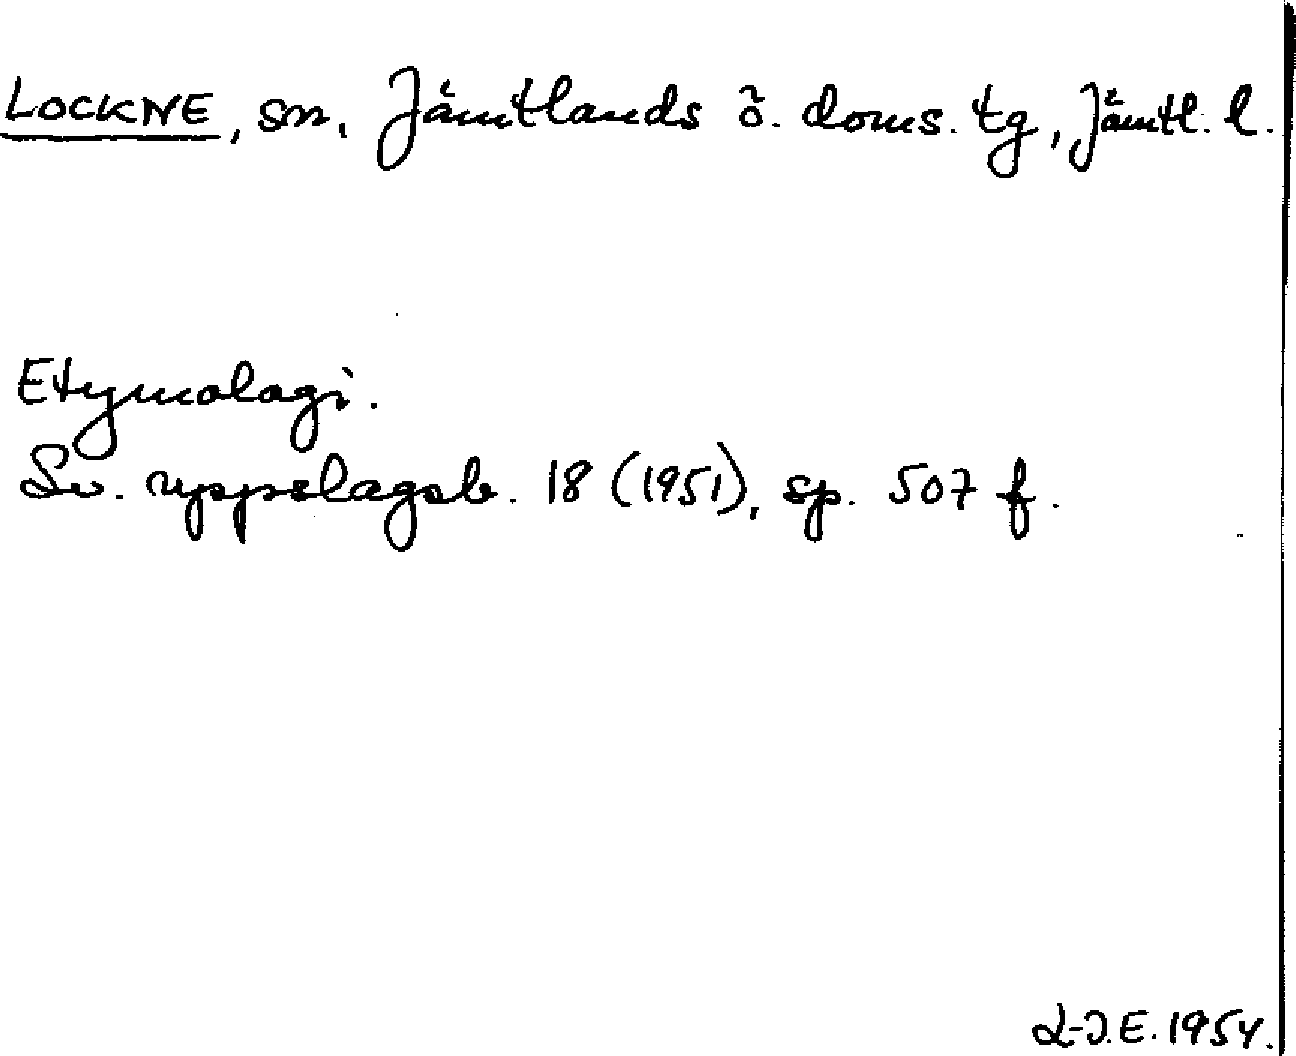 LOCKNE, sn, Jämtlands ö. doms. tg, Jämtl. l.
Etymologi.
Sv. uppslagsb. 18 (1951), sp. 507 f.
L-J.E. 1954.